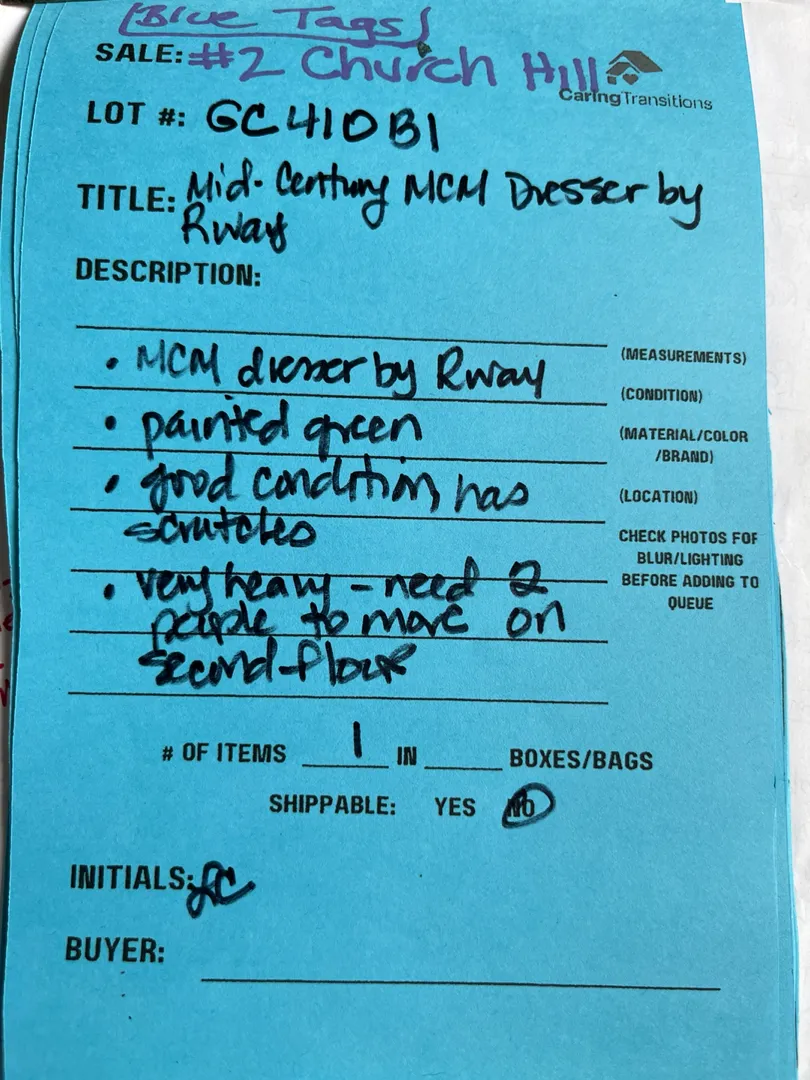 [Blue Tags]
SALE: #2 Church Hill
CaringTransitions
LOT #: GC410B1
TITLE: Mid-Century MCM Dresser by
Rway
DESCRIPTION:
• MCM dresser by Rway
(MEASUREMENTS)
(CONDITION)
• painted green
(MATERIAL/COLOR
/BRAND)
• good condition has
scratches
(LOCATION)
CHECK PHOTOS FOR
BLUR/LIGHTING
BEFORE ADDING TO
QUEUE
• very heavy - need 2
people to move on
second floor
# OF ITEMS 1 IN ____ BOXES/BAGS
SHIPPABLE: YES NO
INITIALS: LC
BUYER: